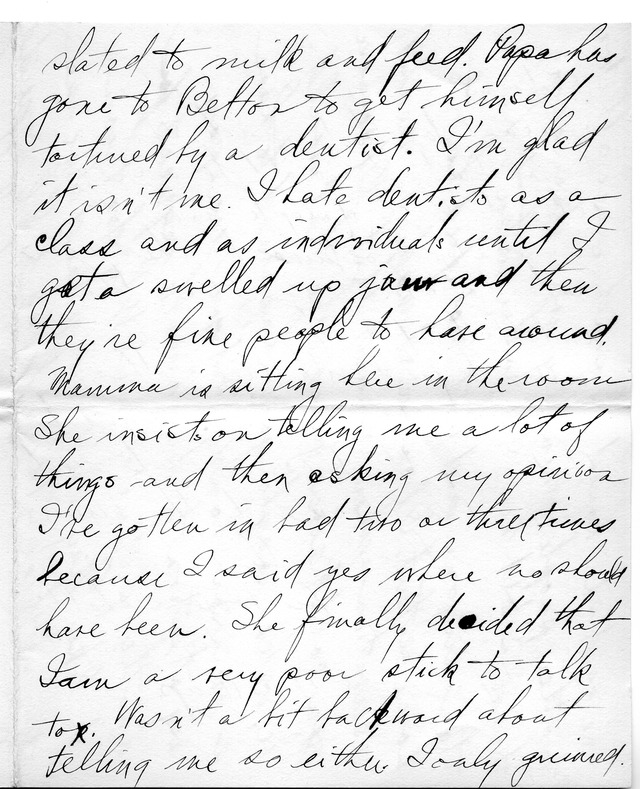 slated to milk and feed. Papa has
gone to Belton to get himself
tortured by a dentist. I'm glad
it isn't me. I hate dentists as a
class and as individuals until I
get a swelled up jaw and then
they're fine people to have around.
Mamma is sitting here in the room
She insists on telling me a lot of
things and then asking my opinion
I've gotten in bad two or three times
because I said yes where no should
have been. She finally decided that
I am a very poor stick to talk
to. Wasn't a bit backward about
telling me so either. I only grinned.